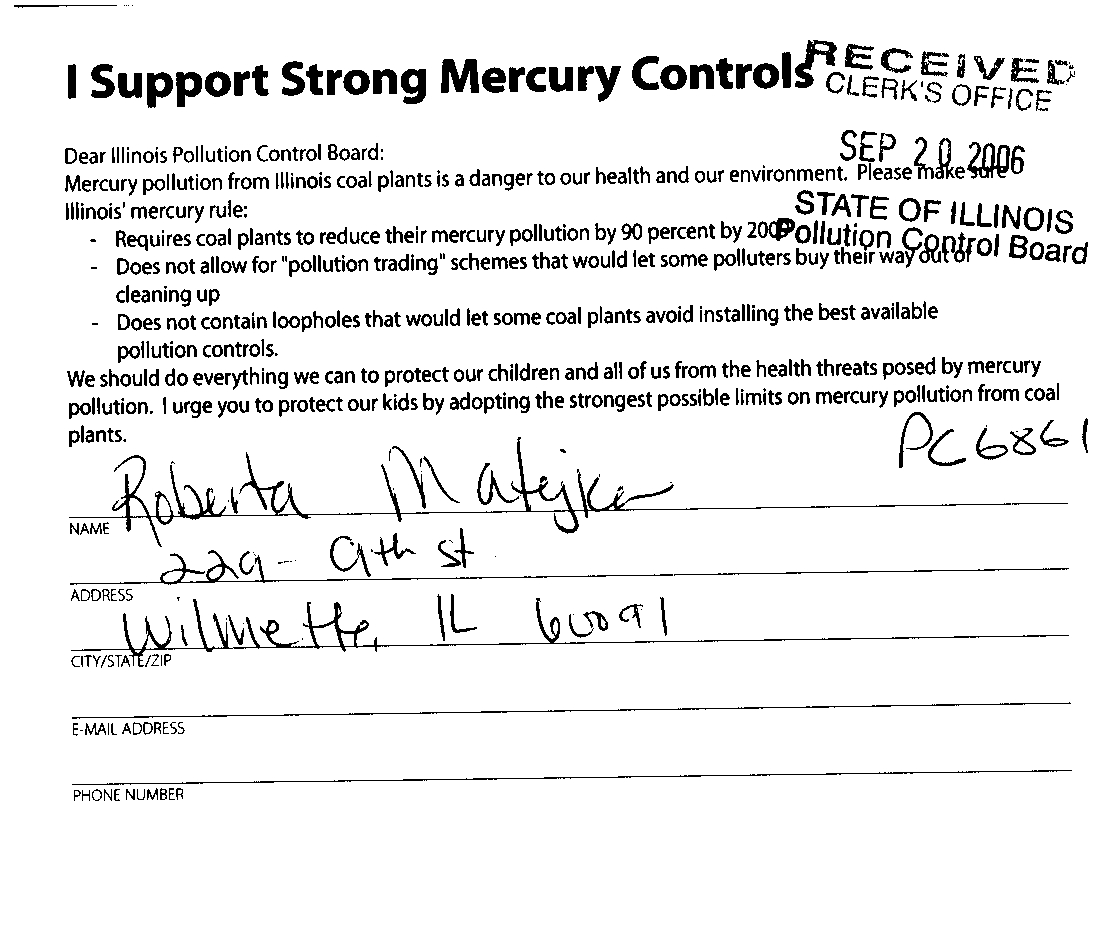 I Support Strong Mercury Controls
RECEIVED
CLERK'S OFFICE
SEP 20 2006
STATE OF ILLINOIS
Pollution Control Board
Dear Illinois Pollution Control Board:
Mercury pollution from Illinois coal plants is a danger to our health and our environment. Please make sure
Illinois' mercury rule:
- Requires coal plants to reduce their mercury pollution by 90 percent by
- Does not allow for "pollution trading" schemes that would let some polluters buy their way out of
cleaning up
- Does not contain loopholes that would let some coal plants avoid installing the best available
pollution controls.
We should do everything we can to protect our children and all of us from the health threats posed by mercury
pollution. I urge you to protect our kids by adopting the strongest possible limits on mercury pollution from coal
plants.
PC6861
Roberta Matejka
NAME
229 - 9th st
ADDRESS
Wilmette, IL 60091
CITY/STATE/ZIP
E-MAIL ADDRESS
PHONE NUMBER